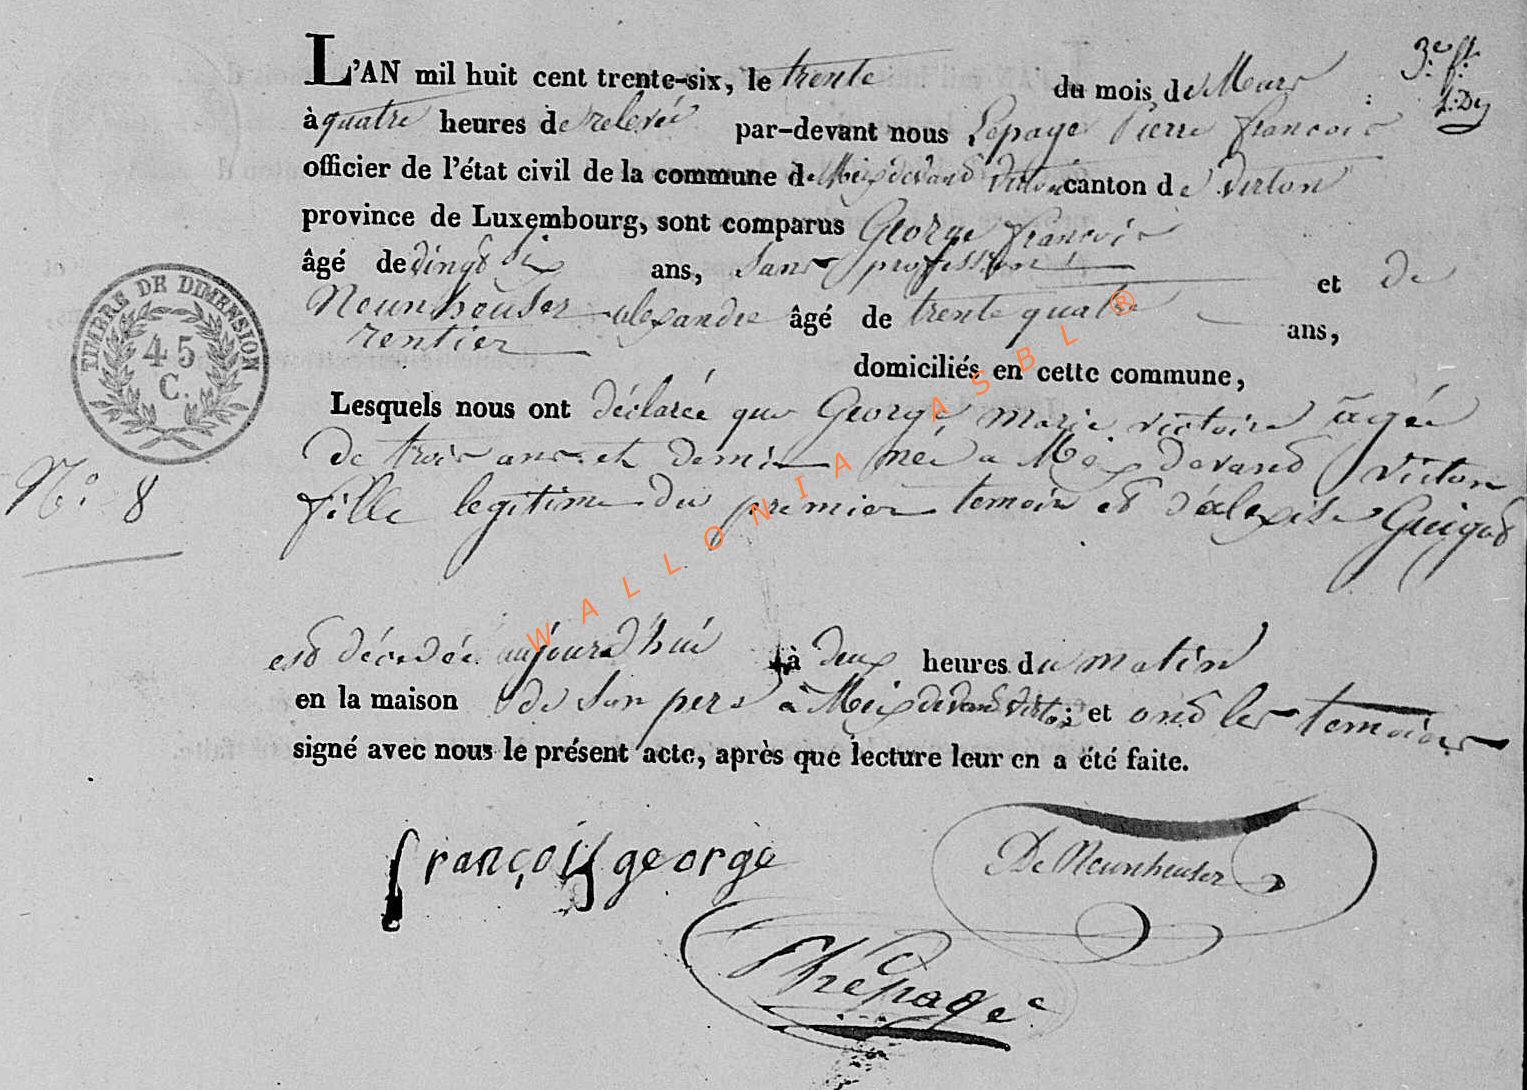 L'AN mil huit cent trente-six, le trente du mois de Mars
3.e f.t
à quatre heures de relevée par-devant nous Lepage Pierre françois
officier de l'état civil de la commune de Meix devand Virton canton de Virton
province de Luxembourg, sont comparus George françois
âgé de vingt six ans, sans profession et de
Neunheuser alexandre âgé de trente quatre ans,
rentier
domiciliés en cette commune,
Lesquels nous ont déclarée que George, marie victoire âgée
de trois ans et demie née a Meix devand Virton
fille legitime du premier temoin et d'alexise Guiot
est décedée aujourd'hui à deux heures du matin
en la maison de son pere à Meix devand Virton; et ont les temoins
signé avec nous le présent acte, après que lecture leur en a été faite.
françois george
De Neunheuser
Lepage
N.o 8
TIMBRE DE DIMENSION
45
C.
WALLONIA ASBL ®